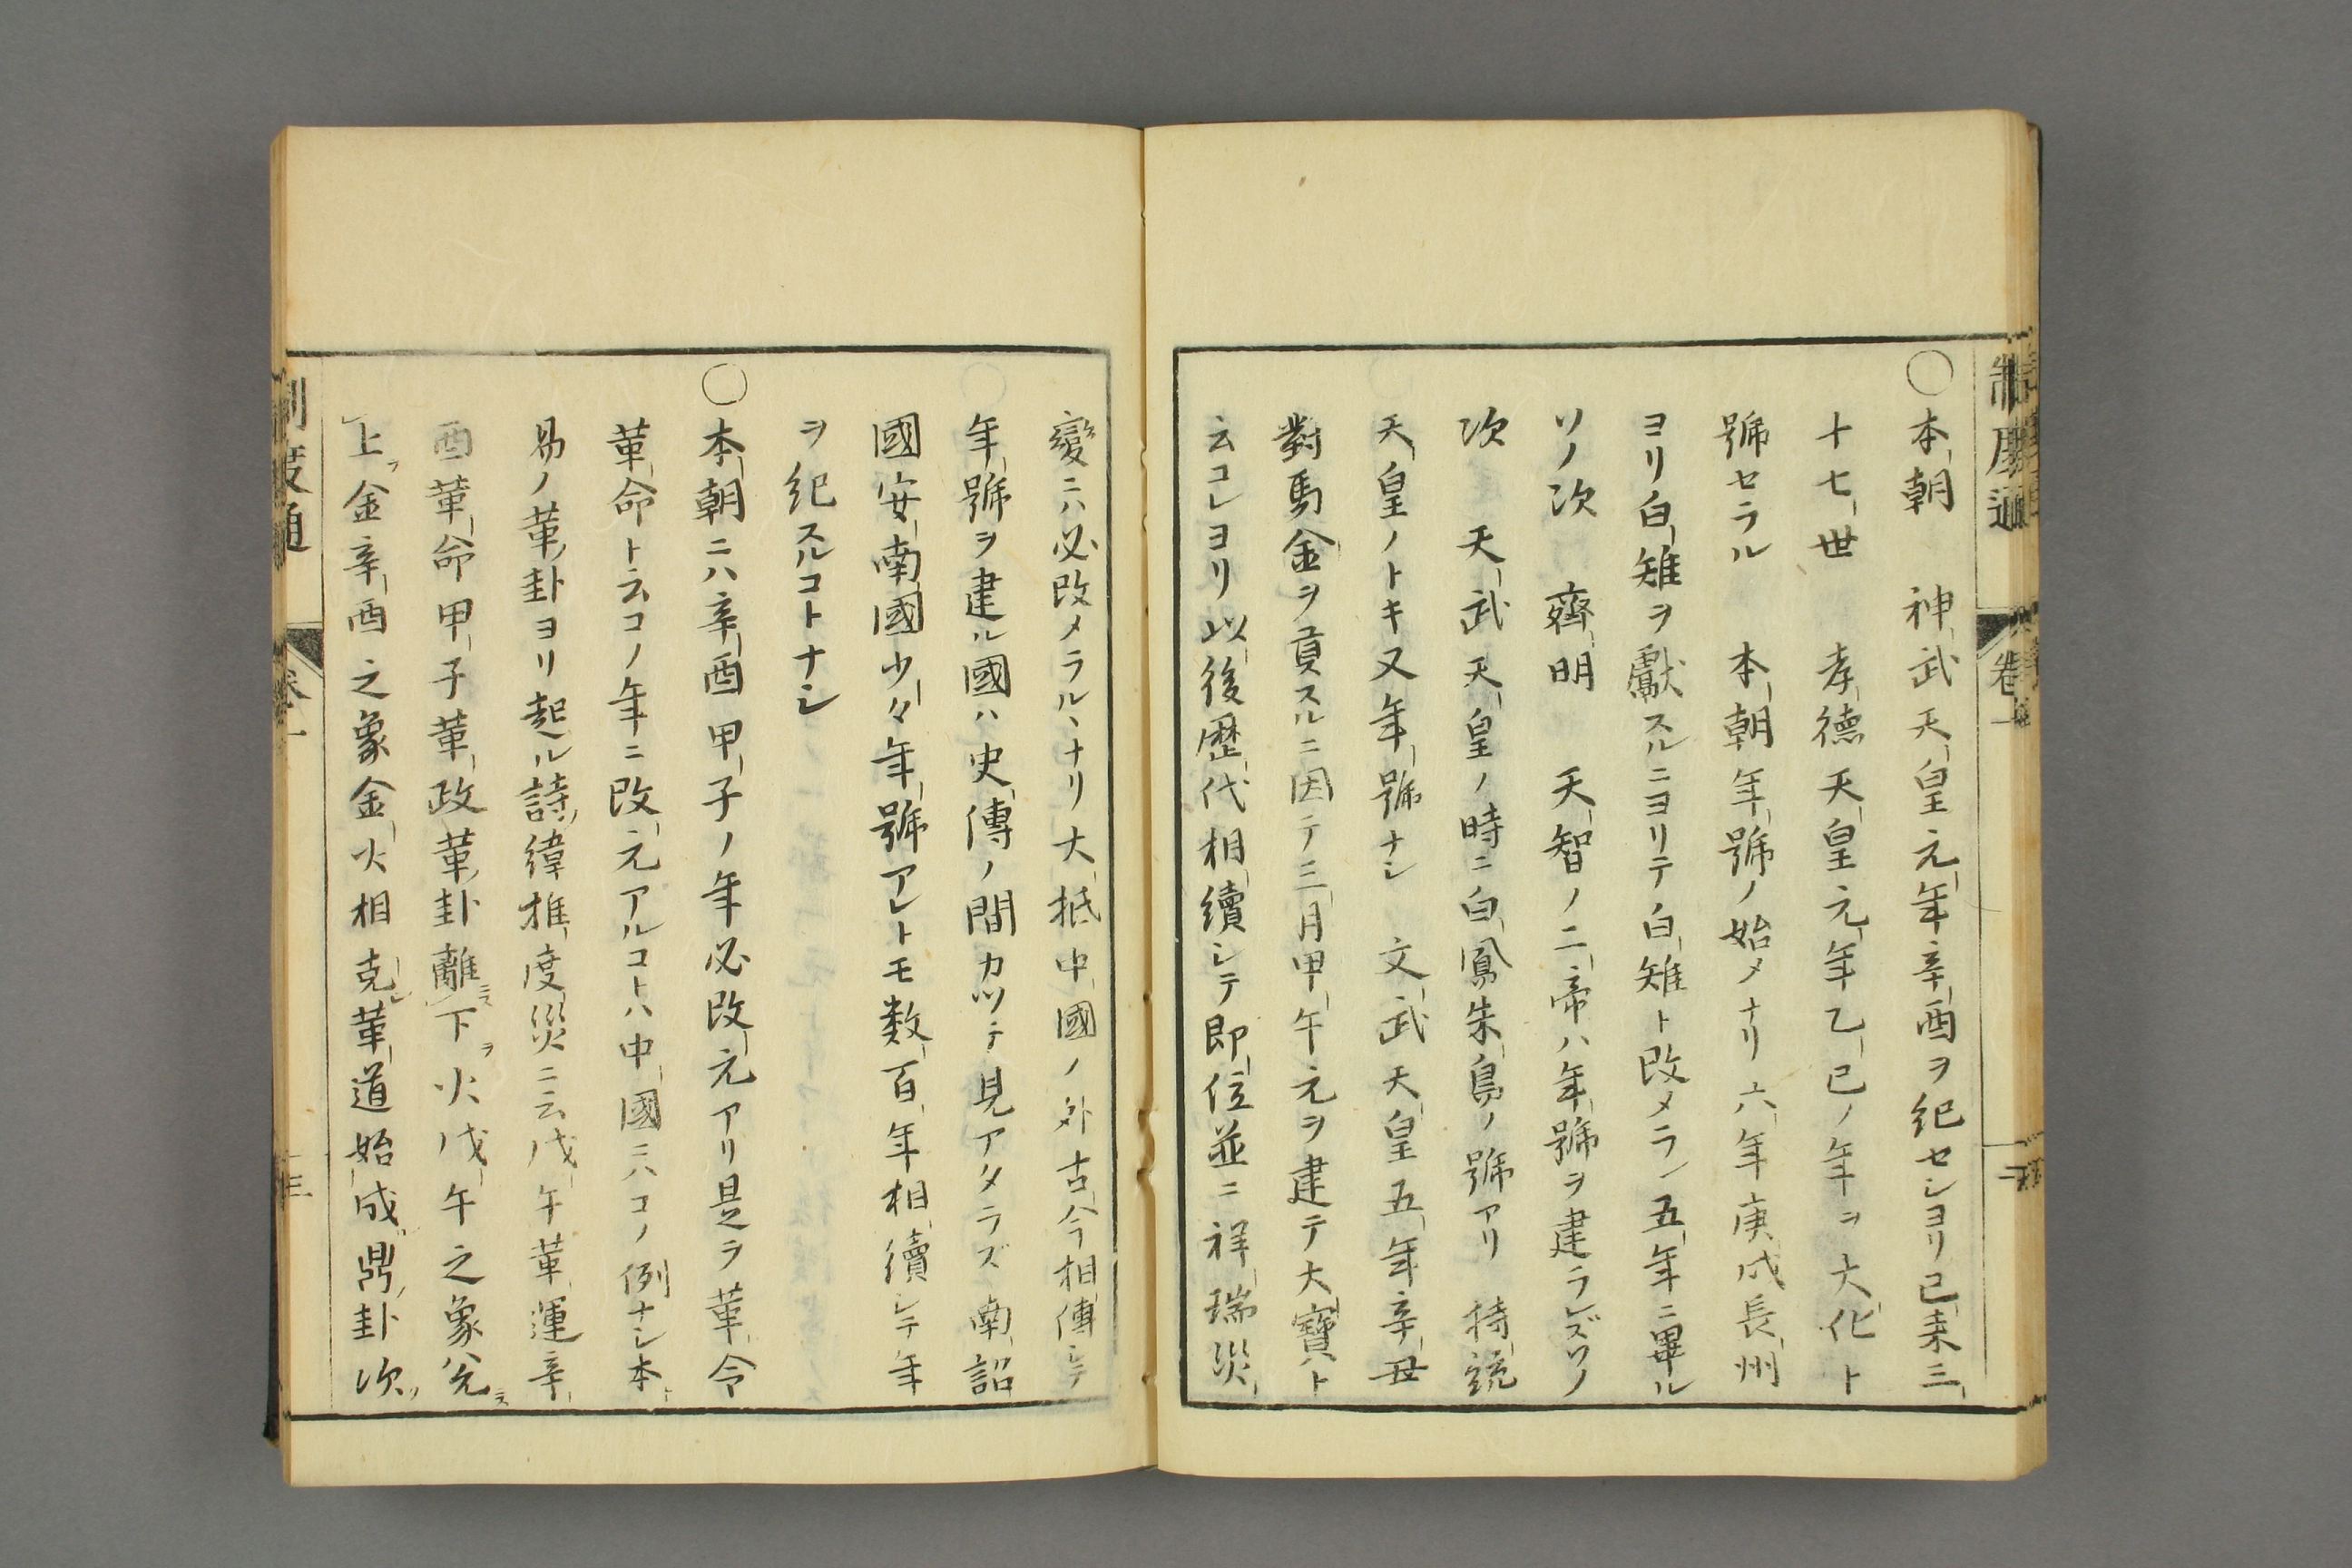 制度通 卷一 二
○本朝 神武天皇元年辛酉ヲ紀セシヨリ已来三
十七世 孝德天皇元年乙巳ノ年ヲ大化ト
號セラル 本朝年號ノ始メナリ六年庚戌長州
ヨリ白雉ヲ獻スルニヨリテ白雉ト改メラル五年ニ畢ル
ソノ次 齊明 天智ノ二帝ハ年號ヲ建ラレズソノ
次 天武天皇ノ時ニ白鳳朱鳥ノ號アリ 持統
天皇ノトキ又年號ナシ 文武天皇五年辛丑
對馬金ヲ貢スルニ因テ三月甲午元ヲ建テ大寶ト
云コレヨリ以後歴代相續シテ即位並ニ祥瑞災
變ニハ必改メラルヽナリ大抵中國ノ外古今相傳シテ
年號ヲ建ル國ハ史傳ノ間カツテ見アタラズ南詔
國安南國少々年號アレトモ数百年相續シテ年
ヲ紀スルコトナシ
○本朝ニハ辛酉甲子ノ年必改元アリ是ヲ革令
革命ト云コノ年ニ改元アルコトハ中國ニハコノ例ナシ本ト
易ノ革卦ヨリ起ル詩緯推度災ニ云戊午革運辛
酉革命甲子革政革卦離ミス下ヲ火戊午之象兌ミス
上ヲ金辛酉之象金火相克シ革道始成鼎卦次ノ
制度通 卷一 三